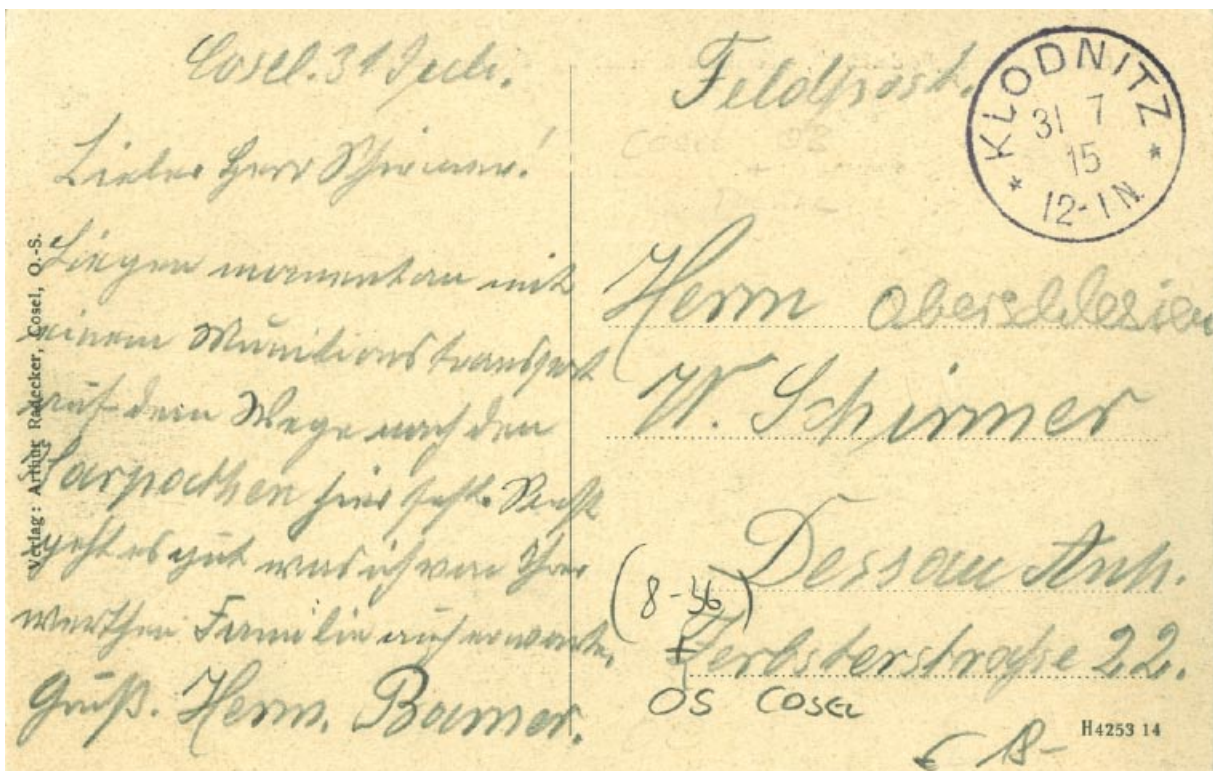 Cosel. 31 Juli.
Lieber Herr Schirmer!
Liegen momentan mit
einem Munitionstransport
auf dem Wege nach den
Carpathen hier fest. Sonst
geht es gut was ich von Ihrer
werthen Familie auch erwarte.
Gruß. Herm.
Verlag: Arthur Radecker, Cosel, O.-S.
Feldpost.
KLODNITZ
31 7
15
12-1N.
Herrn
Oberschlesien
W. Schirmer
Dessau Anh.
Zerbsterstraße 22.
(8-36)
OS COSEL
H4253 14